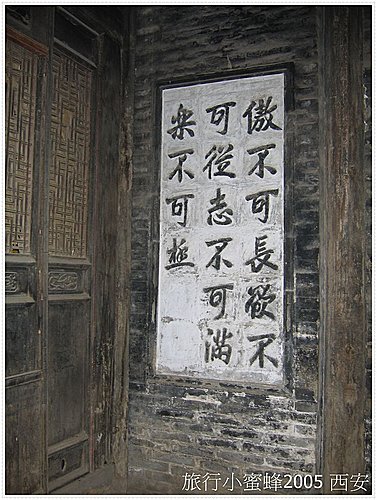 傲不可長欲不
可從志不可滿
樂不可極
旅行小蜜蜂2005 西安